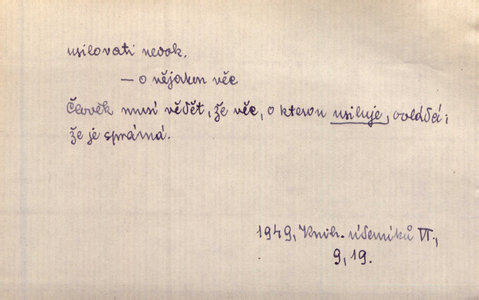 usilovati nedok.
— o nějakou věc
Člověk musí vědět, že věc, o kterou usiluje, ovládá i
že je správná.
1949, Knih. učemníků VI.,
9, 19.